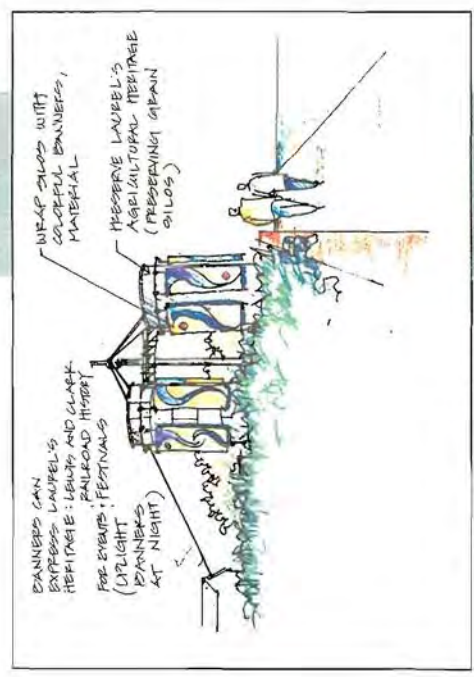 BANNERS CAN
EXPRESS LAUREL'S
HERITAGE: LEWIS AND CLARK
RAILROAD HISTORY
FOR EVENTS: FESTIVALS
(UPLIGHT
BANNERS
AT NIGHT)
WRAP SILOS WITH
COLORFUL BANNERS,
MATERIAL
PRESERVE LAUREL'S
AGRICULTURAL HERITAGE
(PRESERVING GRAIN
SILOS)